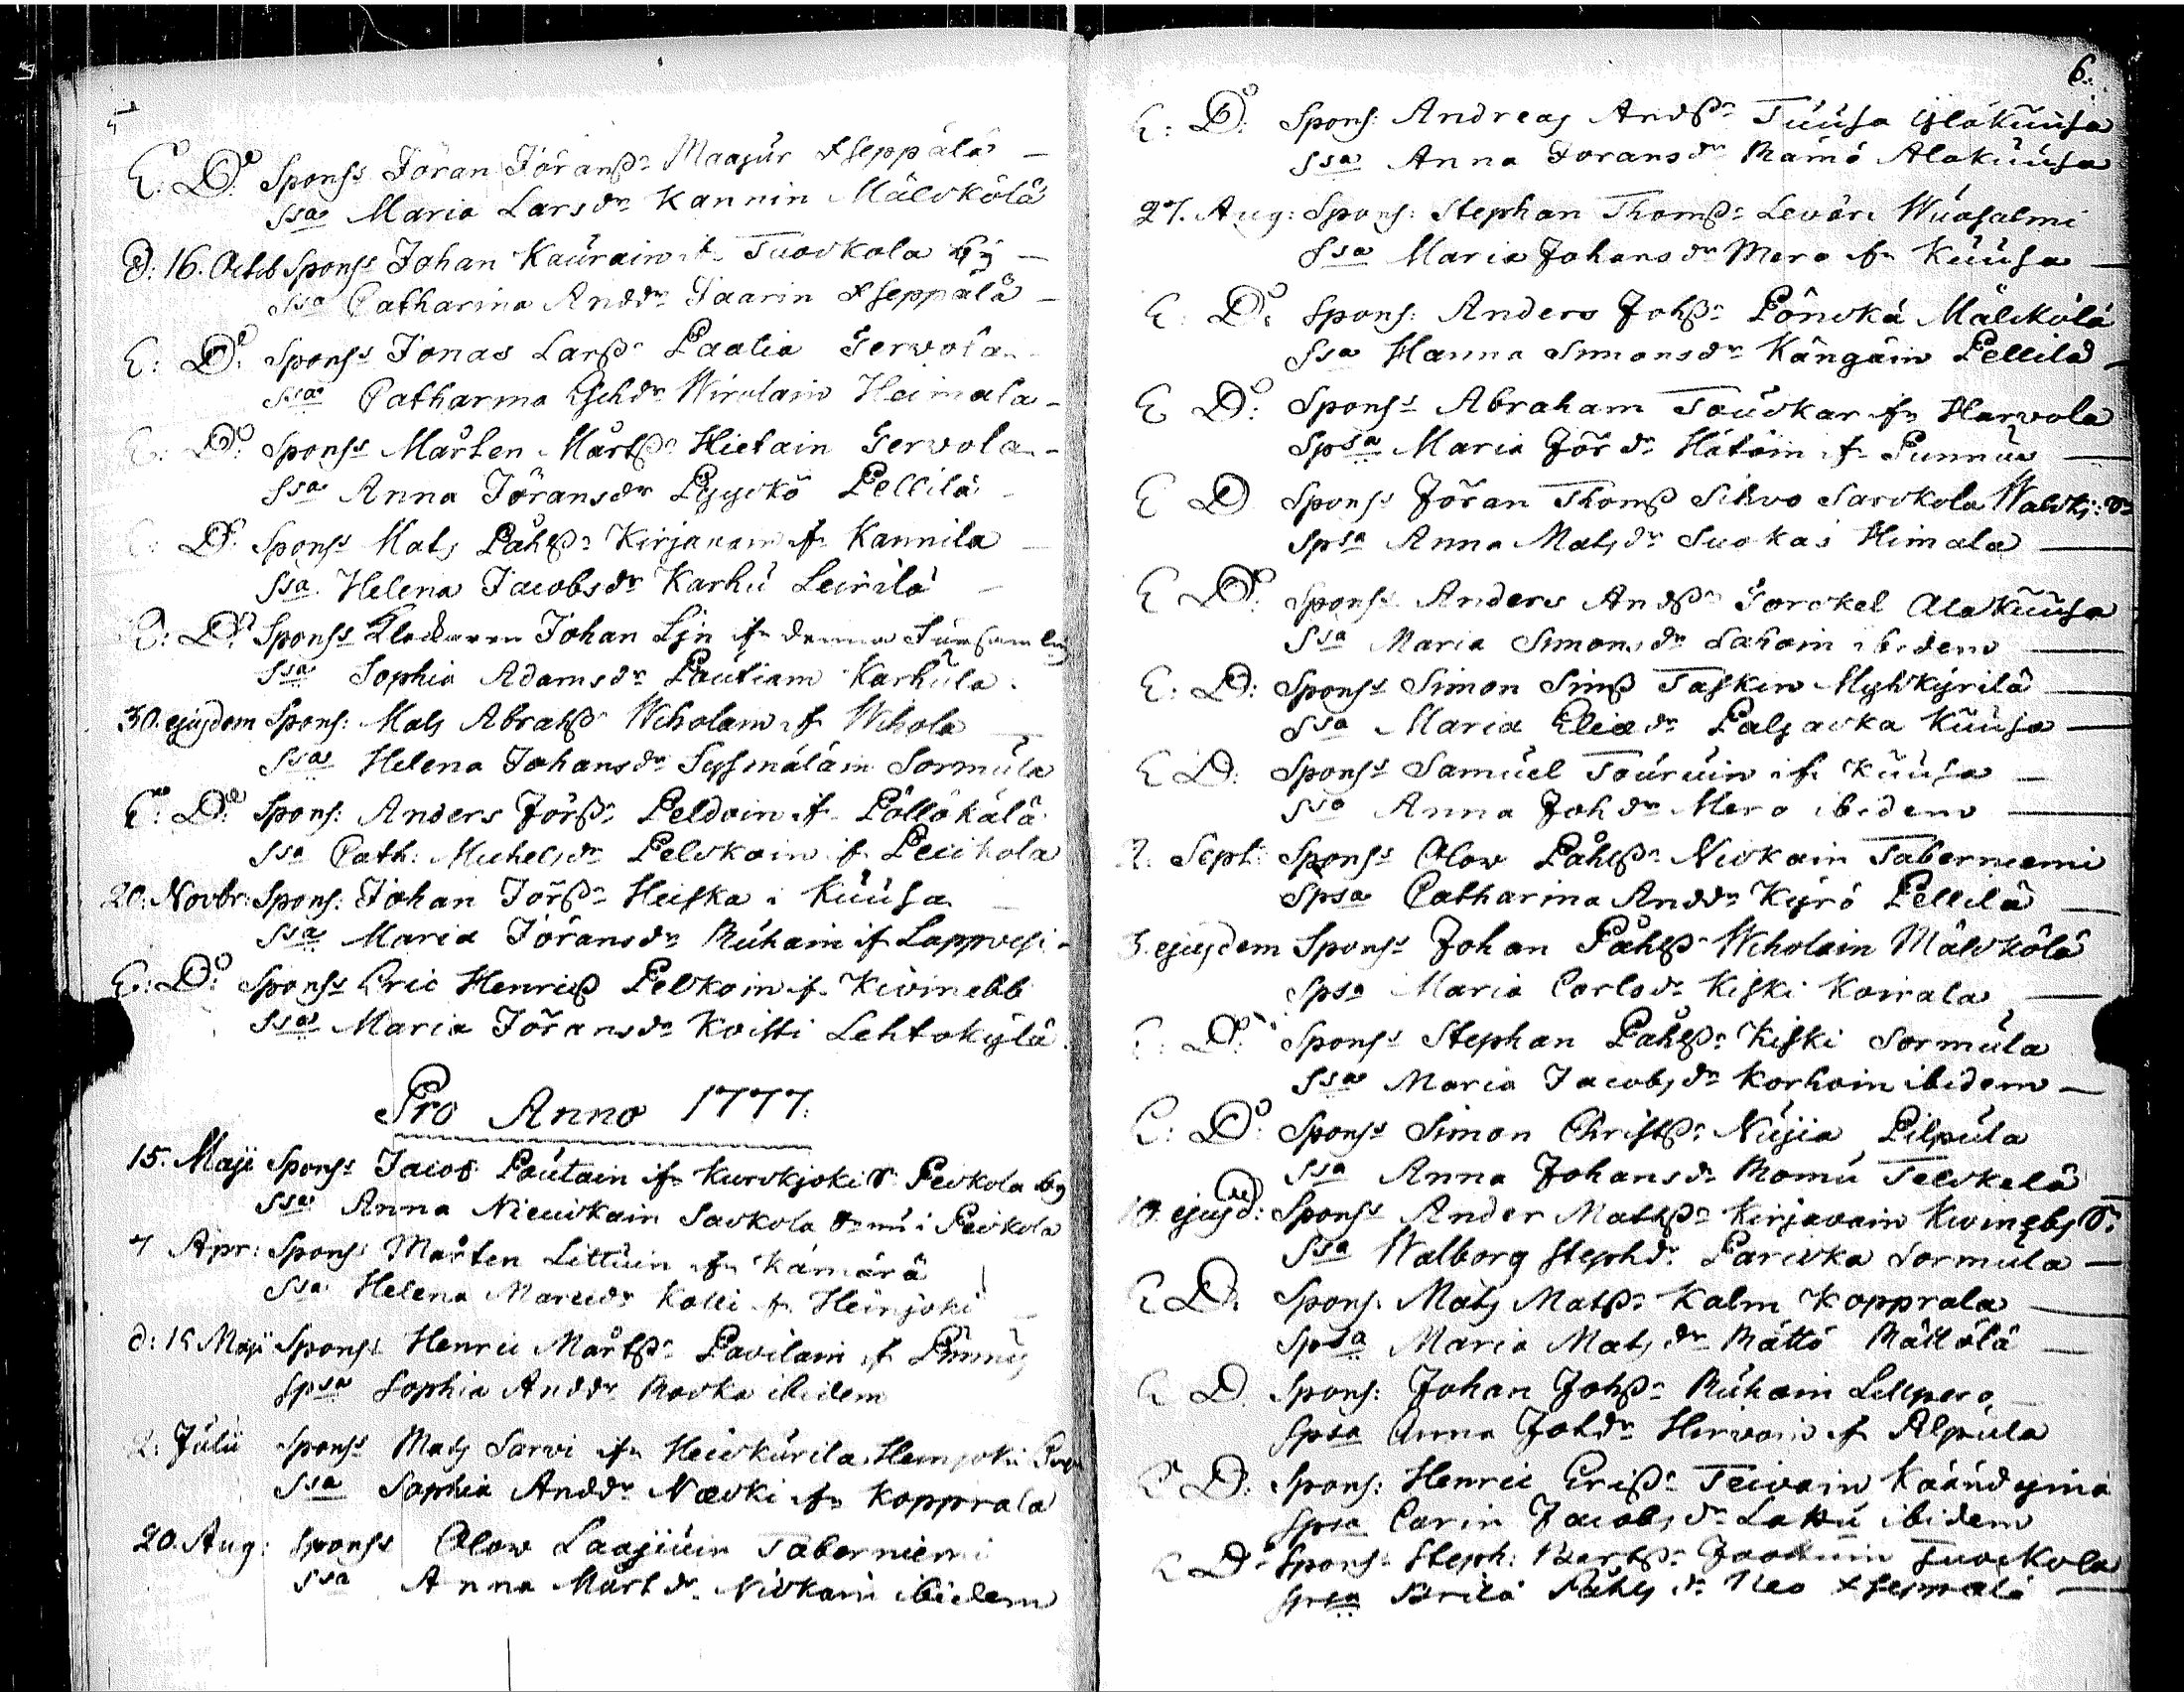 5
E: D:o Spons: Jöran Jöranß:n Maajur Kseppälä –
Ssa Maria Larsd:r Kannin Mälckölä
d: 16. Octob Spons: Johan Kaurain if:n Tuockola by –
Ssa Catharina Andd:r Taarin Kseppälä –
E: D:o Spons: Jonas Larß:n Paalia Jervola
Ssa Catharina Esehd:r Wirolain Heimala –
E: D:o Spons: Mårten Mårtß:n Hietain Jervola –
Ssa Anna Jöransd:r Pyyckö Pellilä
E: D:o Spons: Mats Påhlß:n Kirjavain if:n Kannila –
Ssa Helena Jacobsd:r Karhu Leirilä –
E: D:o Spons: Klockaren Johan Ljn if:n denna Församling
Ssa Sophia Adamsd:r Pautiain Karhula
30. ejusdem Spons: Mats Abrahß:n Wiholain if:n Wihola
Ssa Helena Johansd:r Sysmäläin Sormula
E: D:o Spons: Anders Jörß:n Peldoin if:n Pöllökälä
Ssa Cath: Michelsd:r Pelckoin if:n Peickola
20: Novbr: Spons: Johan Jörß:n Heiska i Kuusa –
Ssa Maria Jöransd:r Ruhain if:n Lappvesi –
E: D:o Spons: Eric Henricß Pelkoin if:n Kivinebb
Ssa Maria Jöransd:r Koisti Lehtokylä
Pro Anno 1777:
15. Maji Spons: Jacob Pautain if:n Kurckjoki S: Peckola by
Ssa Anna Nieuckain Sackola S:n nu i Peickola
7 Apr: Spons: Mårten Littuin if:n Kämärä
Ssa Helena Marcusd:r Kolli if:n Heinjoki –
d: 15 Maji Spons: Henric Mårtß:n Pavilain if:n Punnus
Spsa Sophia Andd:r Rocka ibidem
2: Julii Spons: Mats Sarvi if:n Heickurila Heinjoki
Ssa Sophia Andd:r Næcki if:n Kopprala
20. Aug: Spons: Olow Laajuin Taberniemi
Ssa Anna Mårtd:r Nickain ibidem
6.
E: D:o Spons: Andreas Andß:n Tuusa Yläkuusa
Ssa Anna Joransd:r Rämö Alakuusa
27. Aug: Spons: Stephan Thomß:n Levöri Wuosalmi
Ssa Maria Johansd:r Mero if:n Kuusa –
E: D:o Spons: Anders Johß:n Pönckä Mälckölä
Ssa Hanna Simonsd:r Kängäin Pellilä –
E D:o Spons: Abraham Touckar if:n Harvola
Spsa Maria Jörd:r Hätöin if:n Punnus –
E D Spons: Jöran Thomß Sihvo Sarckola Walckj: S:n
Spsa Anna Matsd:r Suokas Himala –
E D:o Spons: Anders Andß:n Torckel Alakuusa
Ssa Maria Simonsd:r Lahoin ibidem –
E: D: Spons: Simon Simß Taskin Myhkyrilä –
Ssa Maria Eliæd:r Paljacka Kuusa –
E D: Spons: Samuel Touruin if:n Kuusa –
Ssa Anna Johd:r Mero ibidem –
2: Sept: Spons: Olow Påhlß:n Nickain Taberniemi
Spsa Catharina Andd:r Kyrö Pellilä –
3. ejusdem Spons: Johan Påhlß:n Wiholain Mälckölä
Spsa Maria Carlsd:r Kiski Koirala –
E: D:o Spons: Stephan Påhlß:n Kiski Sormula
Ssa Maria Jacobsd:r Korhoin ibidem –
E: D:o Spons: Simon Christß:n Nuija Pilpula
Ssa Anna Johansd:r Romu Telckelä
ejusd: Spons: Ander Matsß:n Kirjavain Kivinebs S:
Ssa Walborg Stephd:r Paricka Sormula –
E D: Spons: Mats Matsß:n Kalm Kopprala –
Spsa Maria Matsd:r Rättö Rättölä –
E D. Spons: Johan Johß:n Ruhain Lillpero –
Spsa Anna Johd:r Hirvoin if:n Pilpula
E D: Spons: Henric Ericß:n Teivain Käändymä
Spsa Carin Jacobsd:r Laku ibidem
E D:o Spons: Steph: Bertß:n Jookuin Tuockola
Spsa Brita Påhlsd:r Reo Kseppälä –